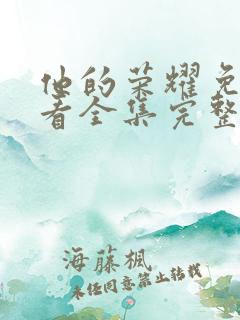 他的荣耀免
看全集完整
海藤楓
未任同意禁止转载